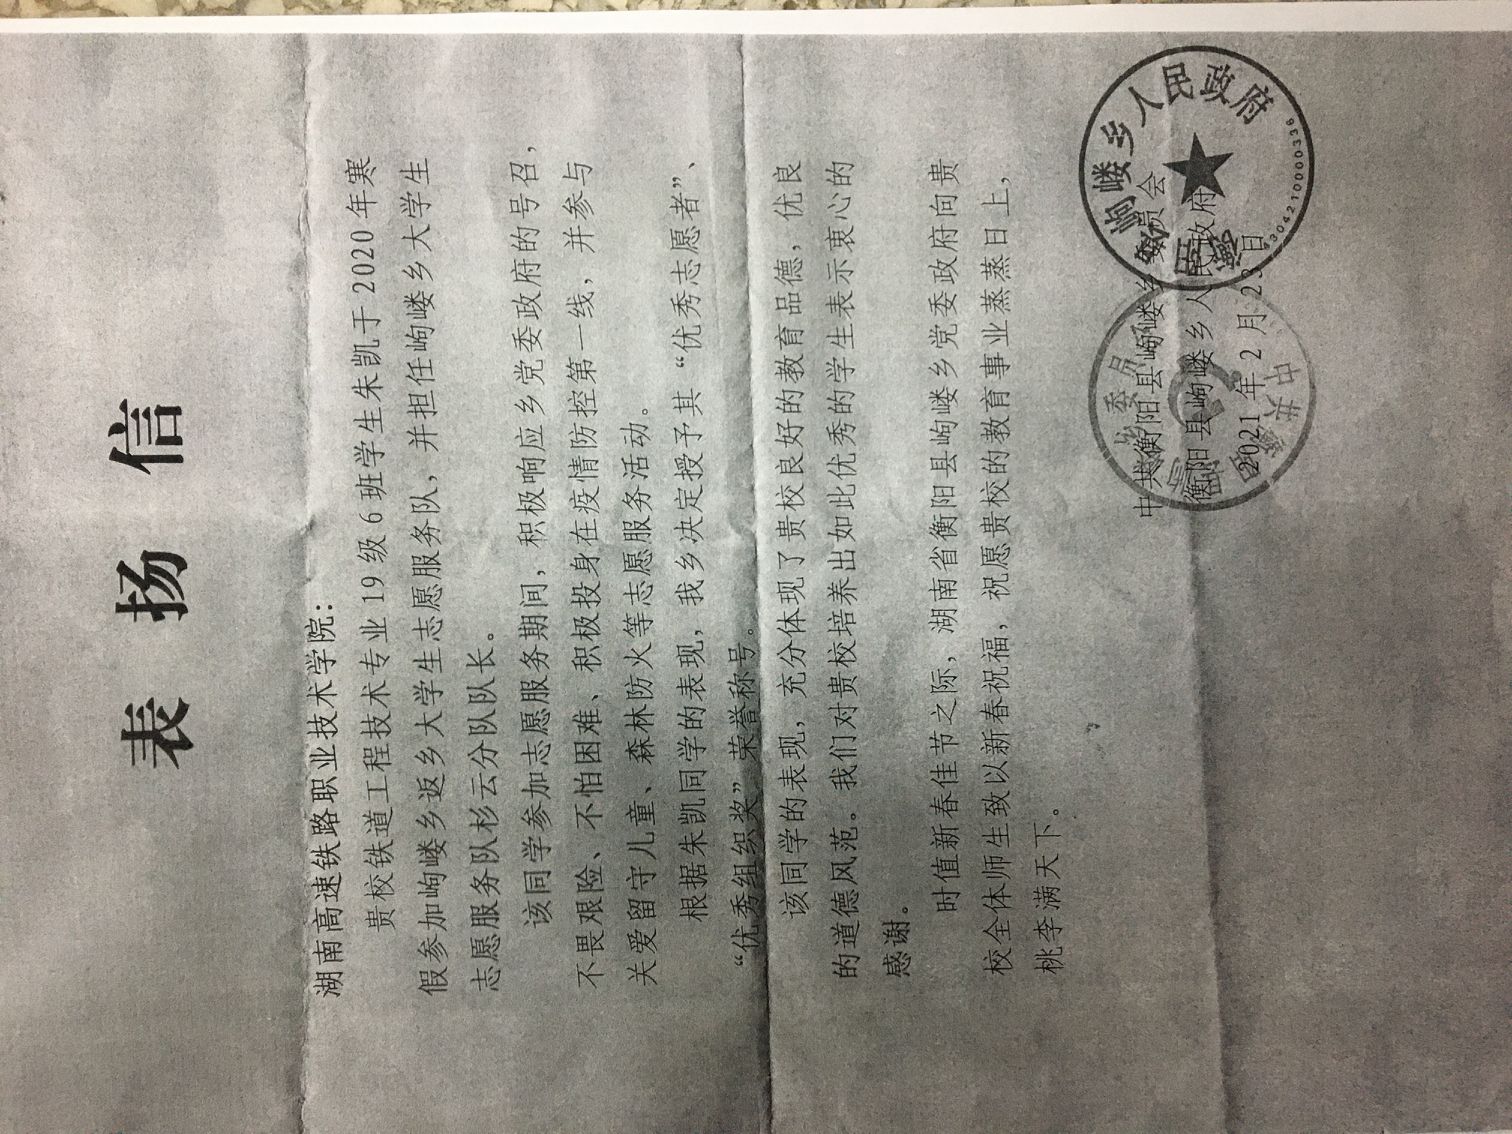 表扬信
湖南高速铁路职业技术学院：
贵校铁道工程技术专业19级6班学生朱凯于2020年寒
假参加岣嵝乡返乡大学生志愿服务队，并担任岣嵝乡大学生
志愿服务队杉云分队队长。
该同学参加志愿服务期间，积极响应乡党委政府的号召，
不畏艰险、不怕困难、积极投身在疫情防控第一线，并参与
关爱留守儿童、森林防火等志愿服务活动。
根据朱凯同学的表现，我乡决定授予其“优秀志愿者”、
“优秀组织奖”荣誉称号。
该同学的表现，充分体现了贵校良好的教育品德，优良
的道德风范。我们对贵校培养出如此优秀的学生表示衷心的
感谢。
时值新春佳节之际，湖南省衡阳县岣嵝乡党委政府向贵
校全体师生致以新春祝福，祝愿贵校的教育事业蒸蒸日上，
桃李满天下。
中共衡阳县岣嵝乡委员会
衡阳县岣嵝乡人民政府
2021年2月23日
衡阳县岣嵝乡人民政府
4304210000336